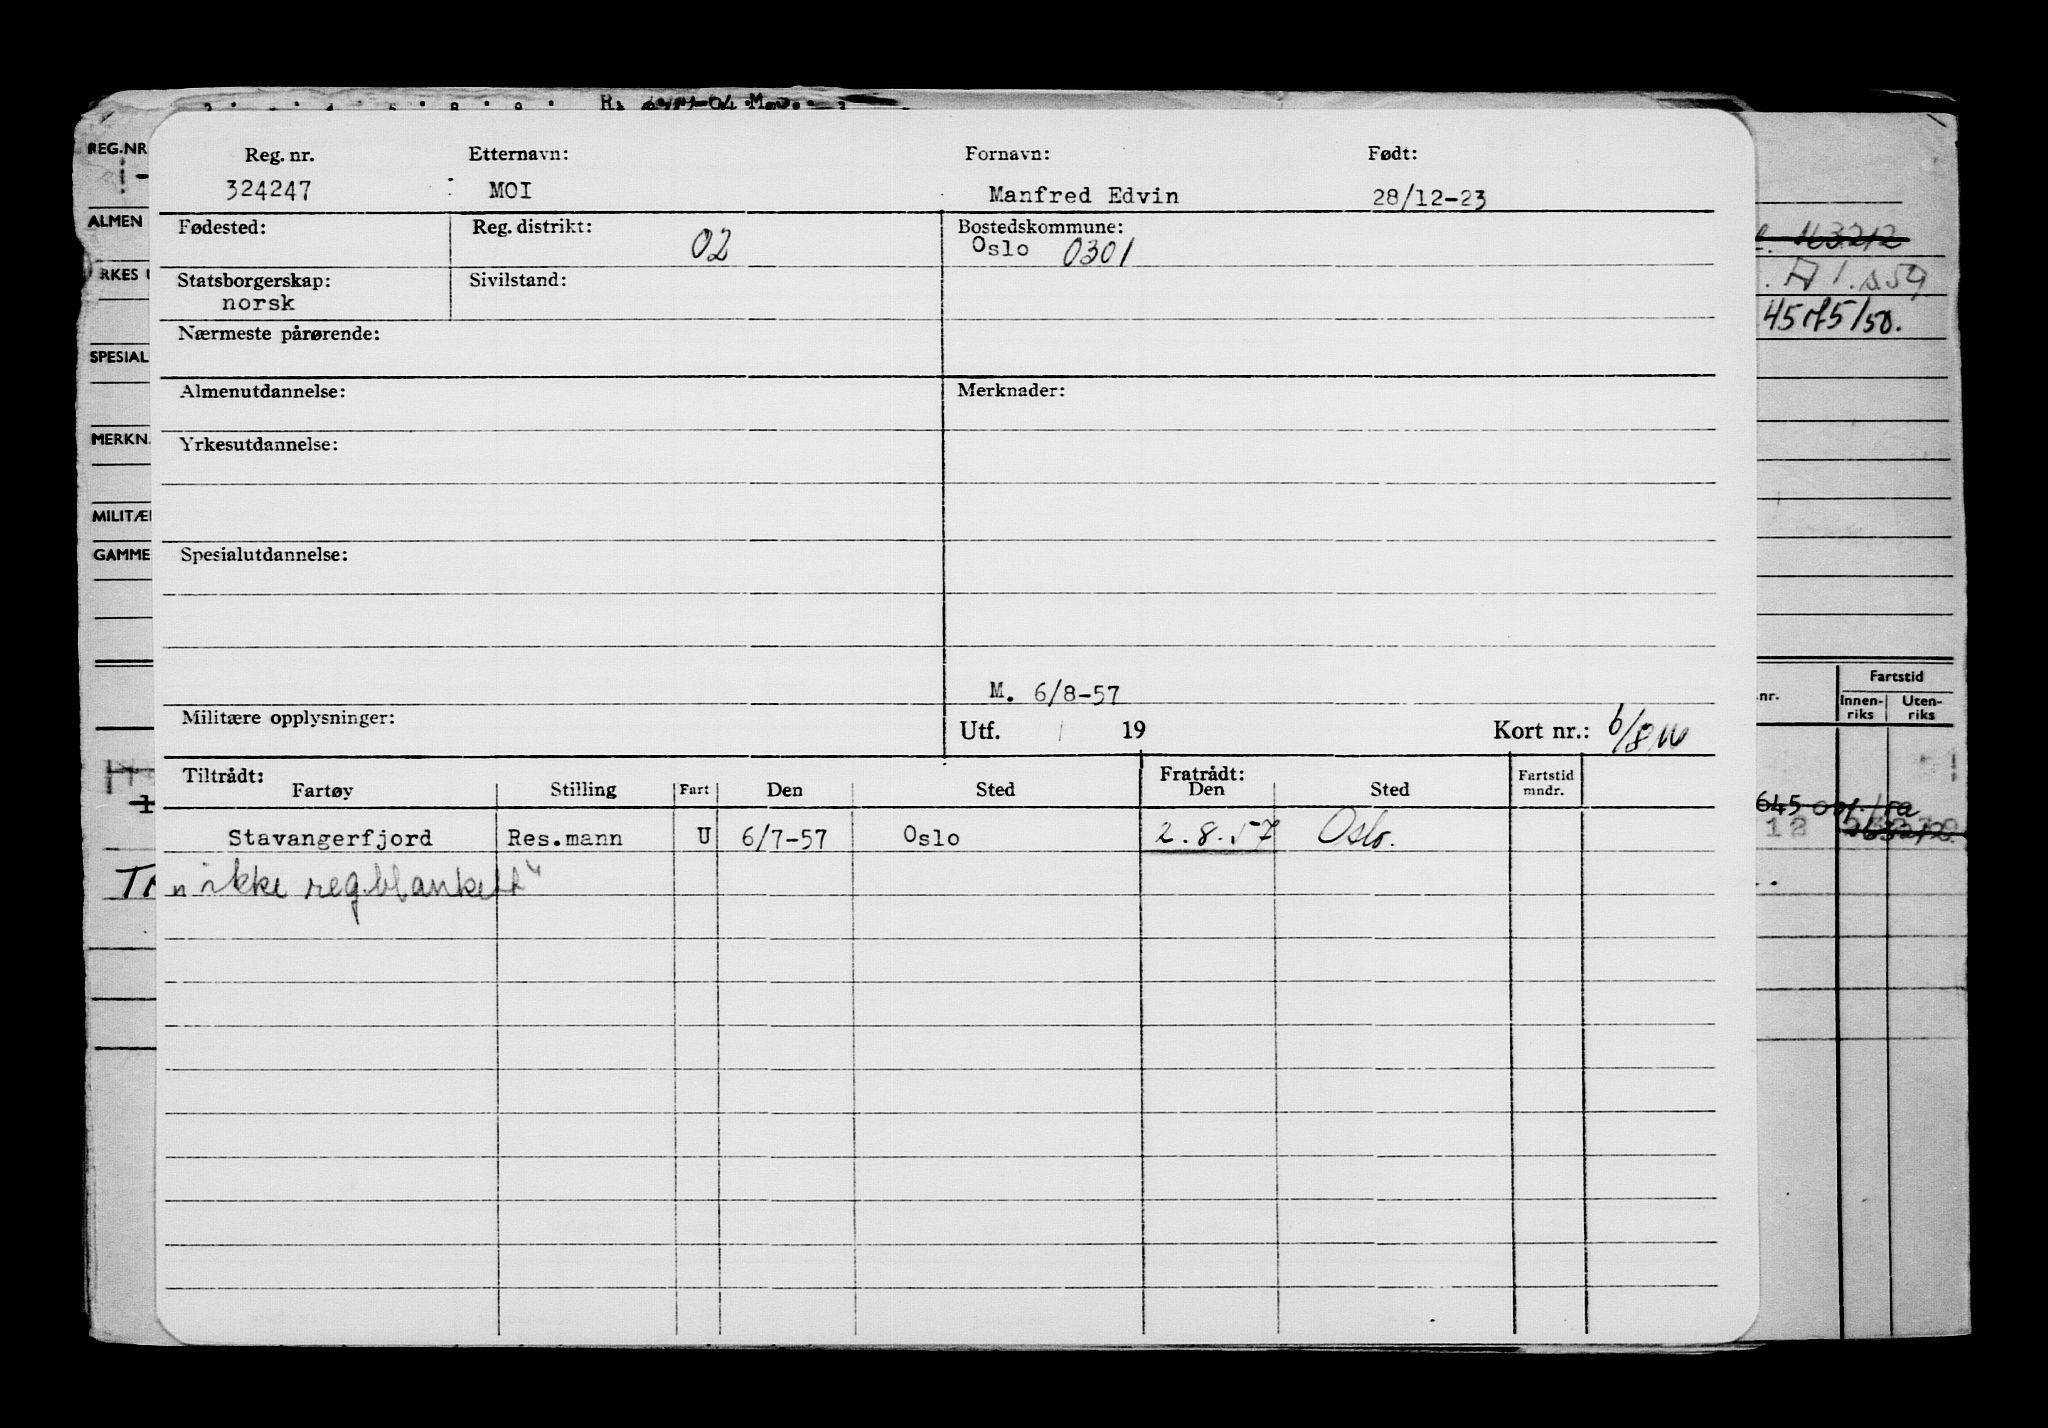 REG.NR
ALMEN
RKES U
SPESIAL
MERKN.
MILITÆR
GAMME
Reg. nr. Etternavn: Fornavn: Født:
324247 MOI Manfred Edvin 28/12-23
Fødested: Reg. distrikt: 02 Bostedskommune:
Oslo 0301
Statsborgerskap: Sivilstand:
norsk
Nærmeste pårørende:
Almenutdannelse: Merknader:
Yrkesutdannelse:
Spesialutdannelse:
M. 6/8-57
Militære opplysninger: Utf. / 19 Kort nr.:
Tiltrådt: Fratrådt: Fartstid
Fartøy Stilling Fart Den Sted Den Sted mndr.
Stavangerfjord Res.mann U 6/7-57 Oslo 2.8.57 Oslo.
"ikke reg.blankett"
163212
4575/50.
nr. Fartstid
Innen-riks Uten-riks
645
12